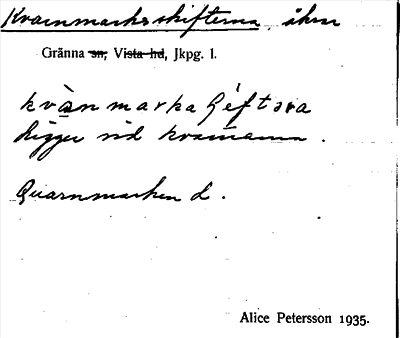 Kvarnmarksskifterna, åkrar
Gränna sn, Vista hd, Jkpg. l.
kvànmarka
ligger vid kvarnarna.
Quarnmarken d.
Alice Petersson 1935.